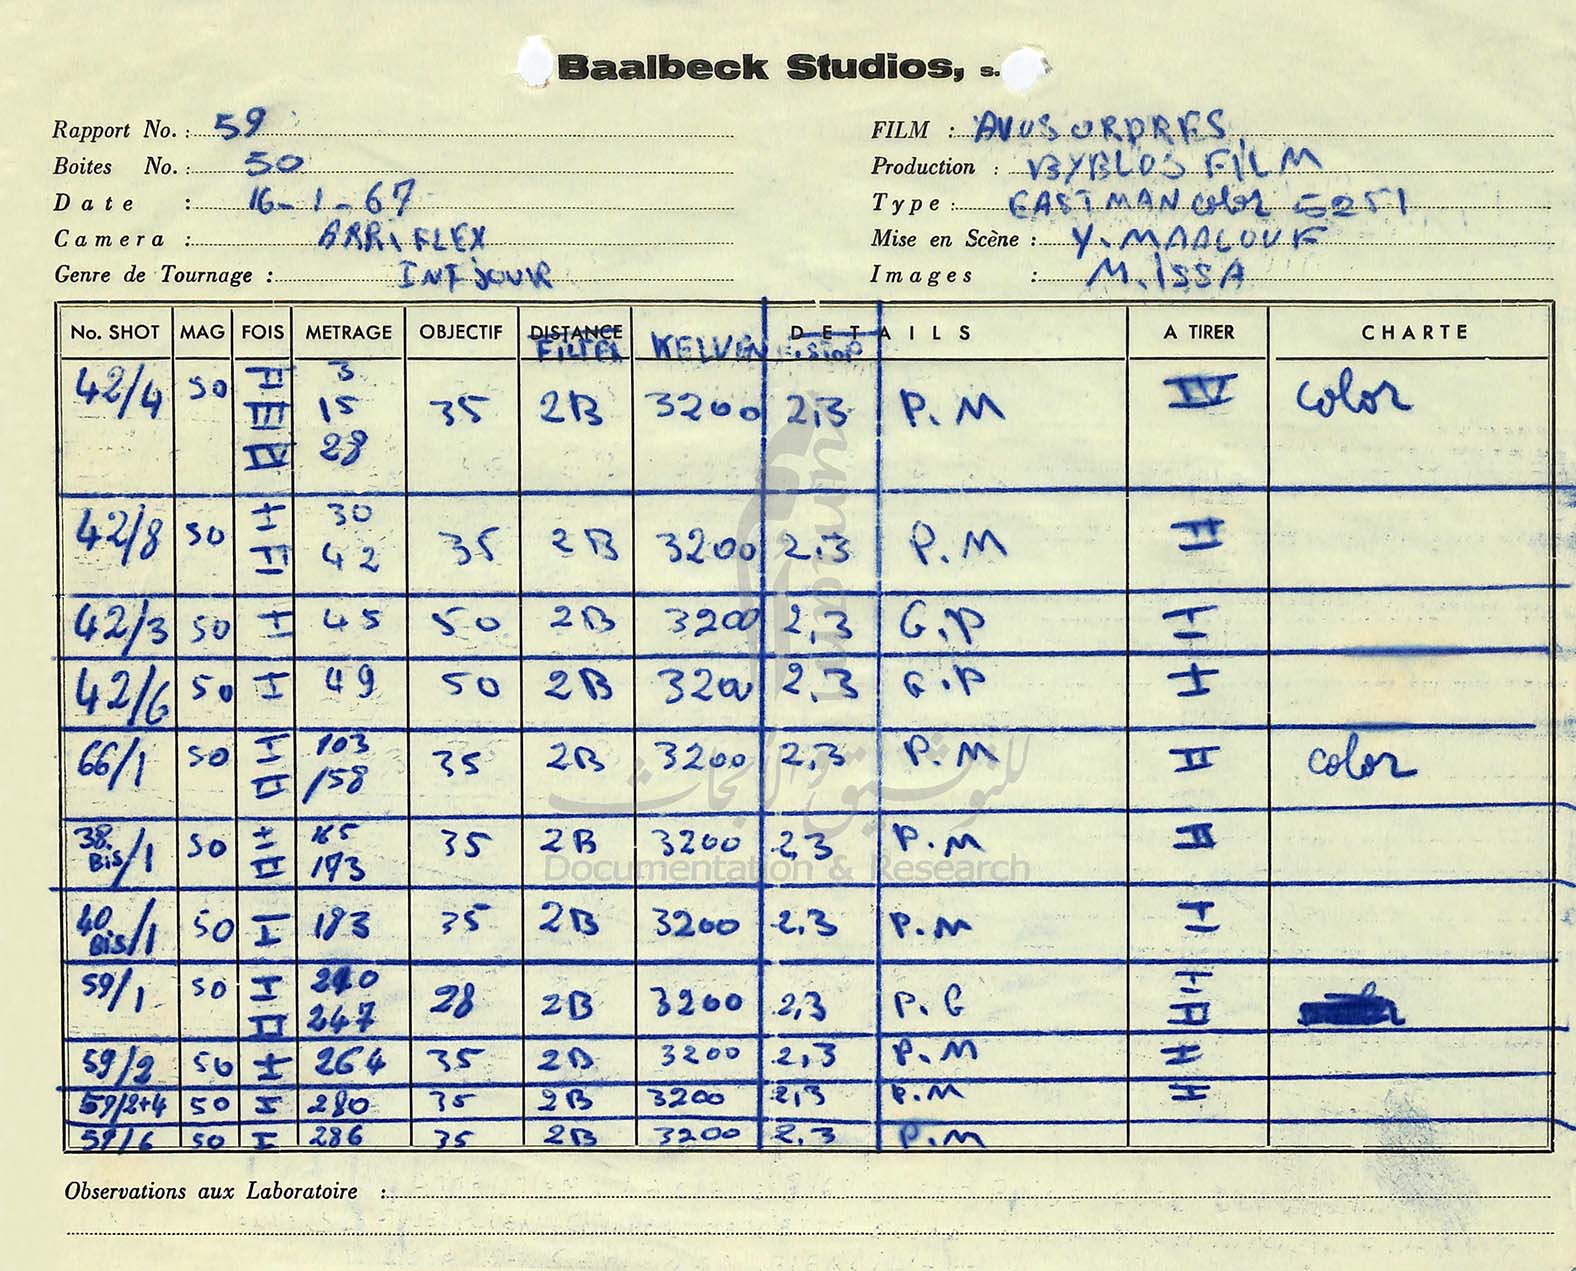 Baalbeck Studios, s.
Rapport No. : 59
Boites No. : 50
Date : 16-1-67
Camera : ARRIFLEX
Genre de Tournage : INT JOUR
FILM : AVOS ORDRES
Production : BYBLOS FILM
Type : EASTMAN color 5251
Mise en Scène : Y. MAALOUF
Images : M. ISSA
No. SHOT MAG FOIS METRAGE OBJECTIF DISTANCE DETAILS A TIRER CHARTE
FILTER KELVEN STOP
42/4 50 II 3 35 2B 3200 2,3 P.M IV color
III 15
IV 28
42/8 50 I 30 35 2B 3200 2,3 P.M II
II 42
42/3 50 I 45 50 2B 3200 2,3 G.P I
42/6 50 I 49 50 2B 3200 2,3 G.P I
66/1 50 I 103 35 2B 3200 2,3 P.M II color
II 158
38. Bis/1 50 I 165 35 2B 3200 2,3 P.M II
II 173
40 Bis/1 50 I 183 35 2B 3200 2,3 P.M I
59/1 50 I 28 2B 3200 2,3 P.G I
II 247 II
59/2 50 I 264 35 2B 3200 2,3 P.M I
59/2+4 50 I 280 35 2B 3200 2,3 P.M I
59/6 50 I 286 35 2B 3200 2,3 P.M
Observations aux Laboratoire :
umam
للتوثيق والأبحاث
Documentation & Research